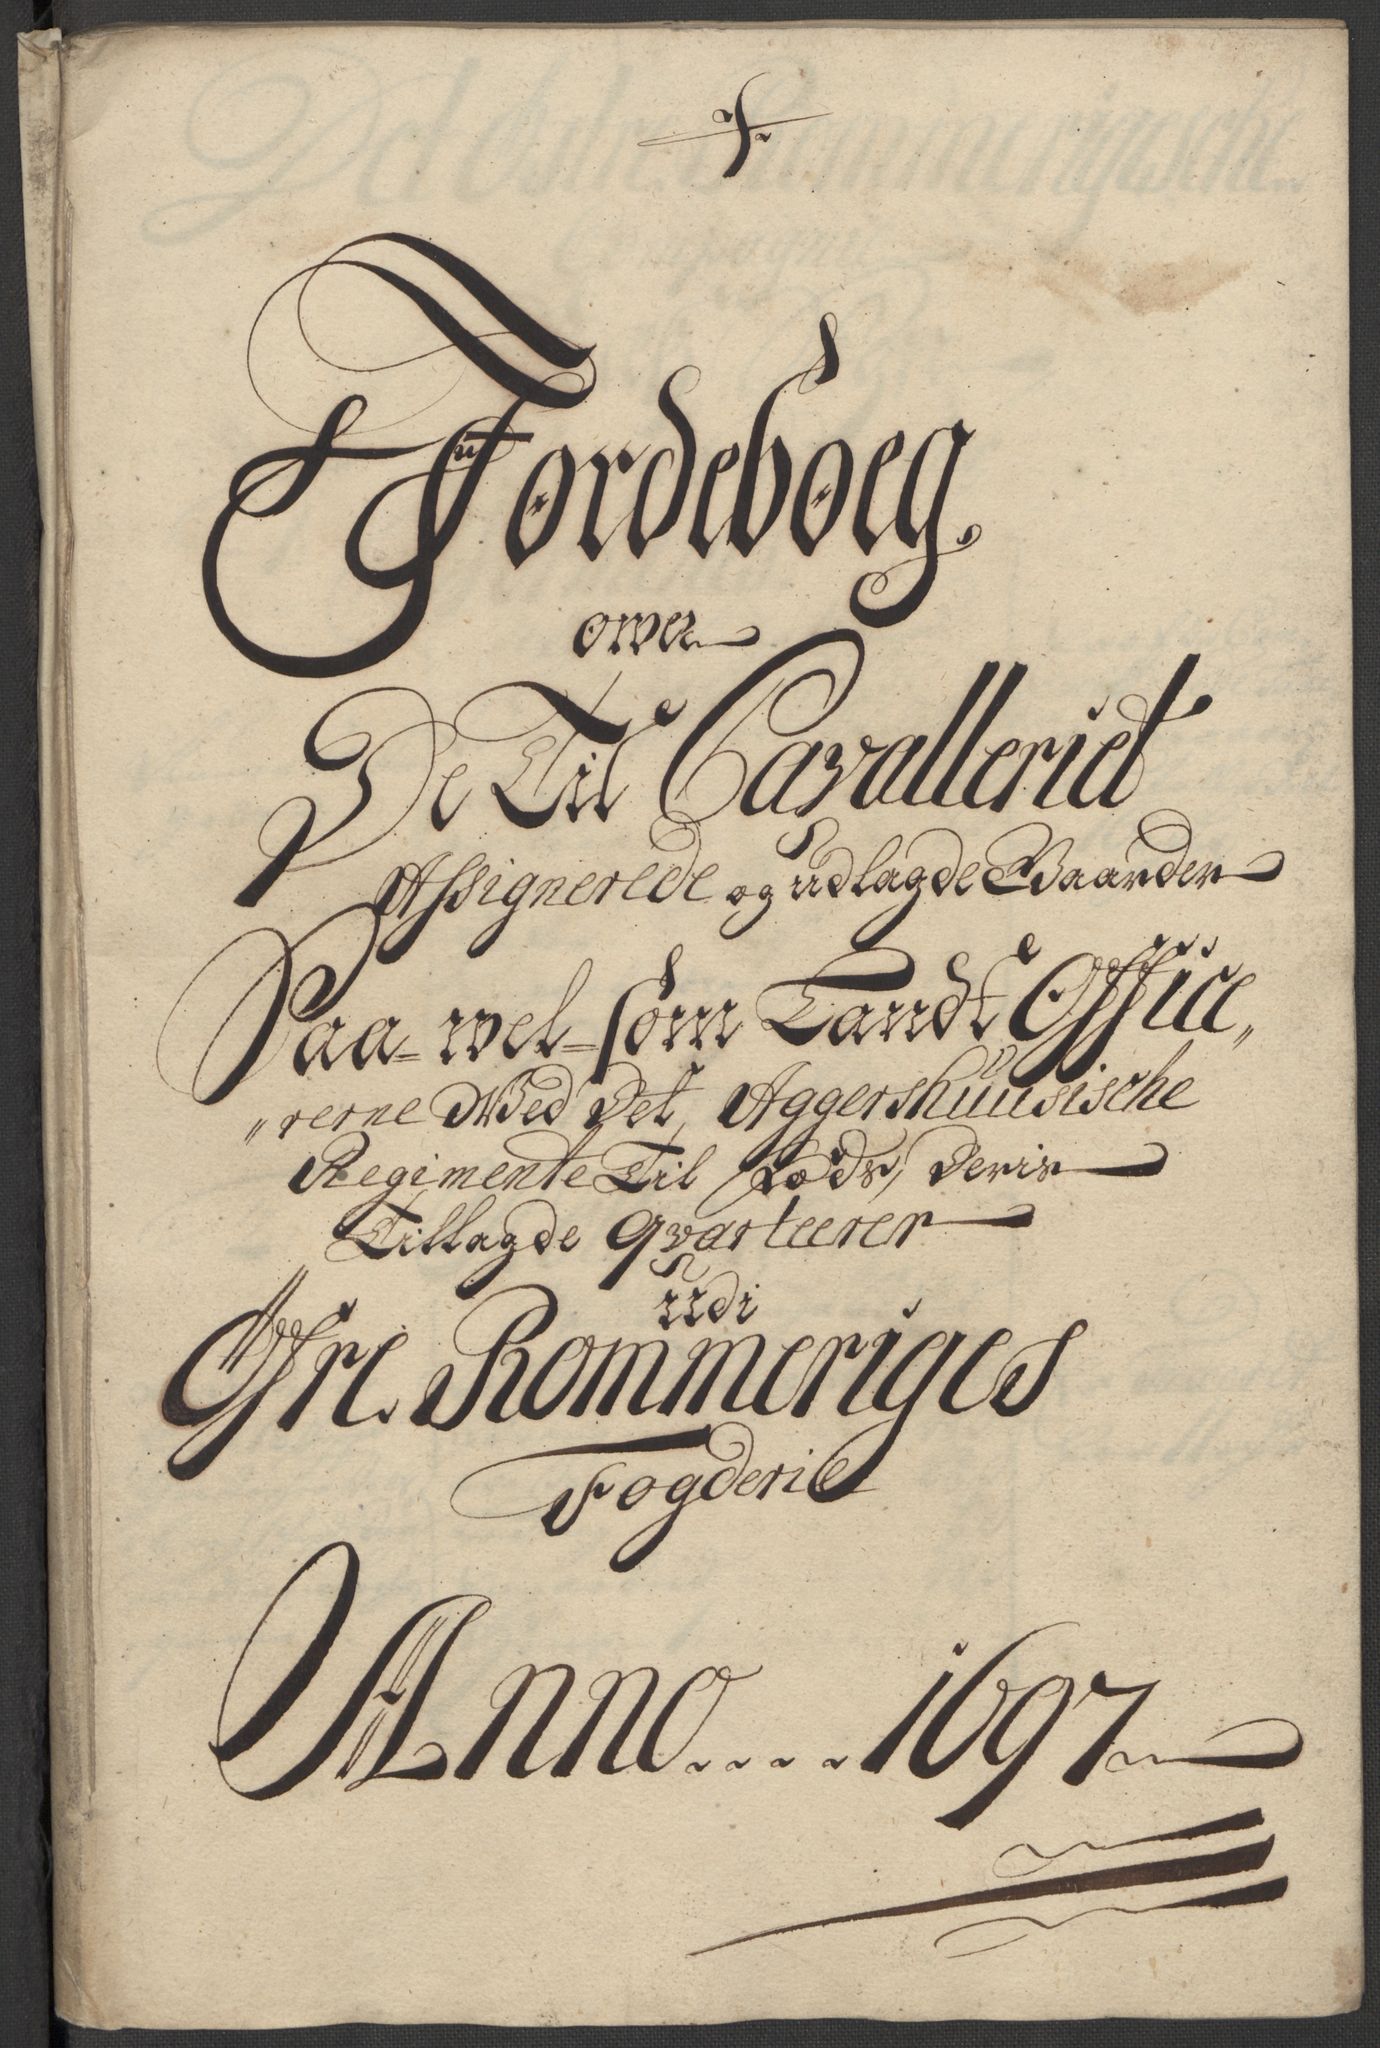 Jordeboeg.
over
De Til Cavalleriet
Assignerede og udlagde Gaarder
Saa-vel-som Landt Office„
„rerne Ved Det Aggershuusische
Regimente Til Fods, Deris
Tillagde Qvarteerer
udi
Øfre Rommeriges
Fogderie
Anno .... 1697